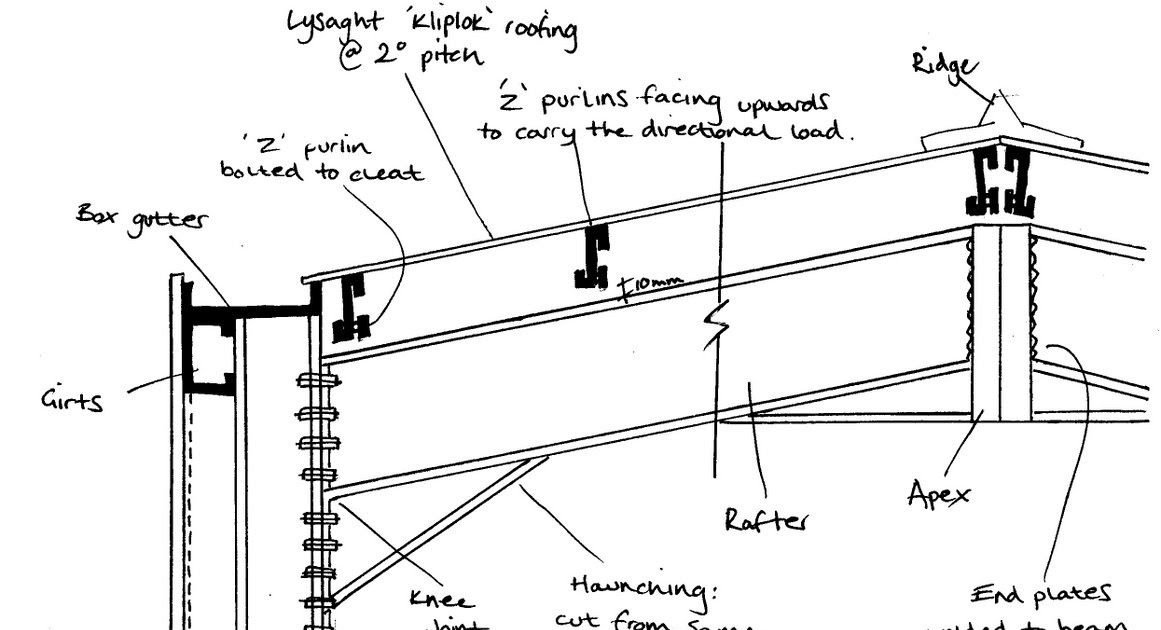 Lysaght 'Kliplok' roofing
@ 2° pitch
Ridge
'Z' purlins facing upwards
to carry the directional load.
'Z' purlin
bolted to cleat
Box gutter
10mm
Girts
Apex
Rafter
Knee
Joint
Haunching:
cut from same
End plates
welded to beam